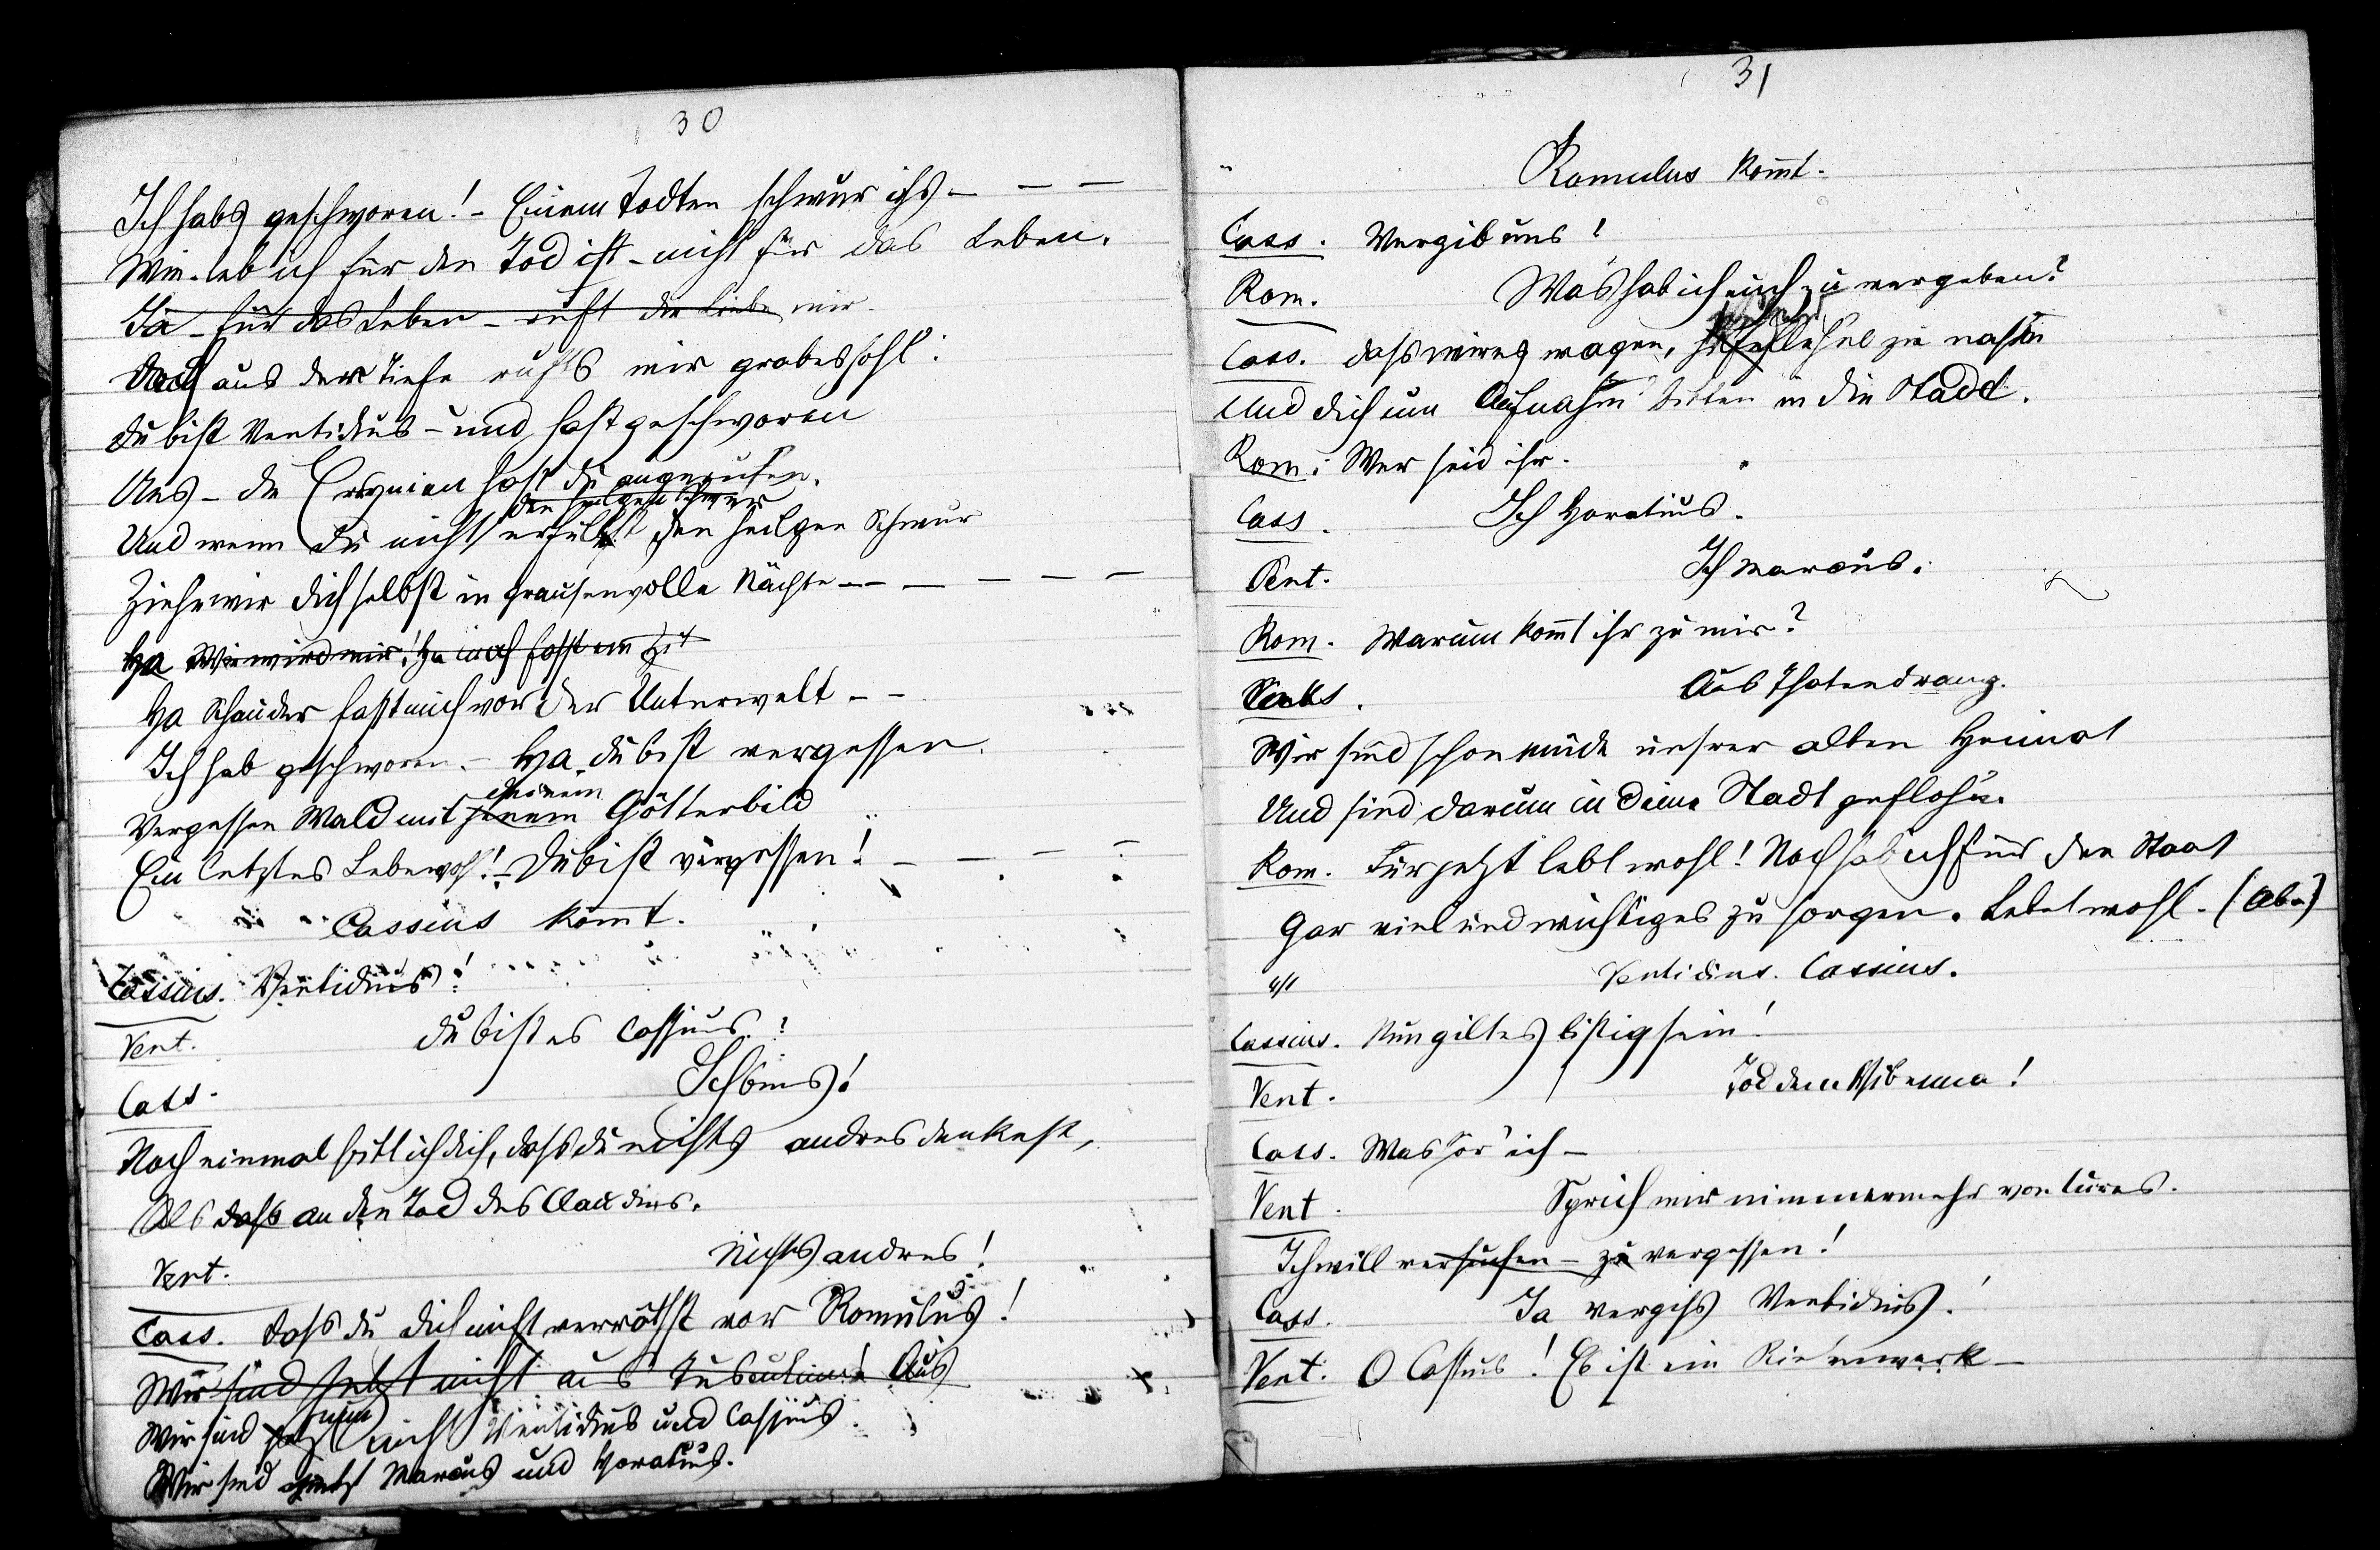 30
Ich habs geschworen! - Einem Todten schwur ichs - - -
Wie leb ich für den Tod ist - nicht für das Leben.
Ja - für das Leben - ruft die Liebe mir
Doch aus der Tiefe rufts mir grabeshohl:
Du bist Ventidius - und hast geschworen
Uns - die Erynien hast du angerufen.
den heilgen Schwur
Und wenn du nicht erfüllst den heilgen Schwur
Ziehn wir dich selbst in grausenvolle Nächte - - - - - -
Ha Wie wird mir! Ha mich fasst
Ha Schauder fasst mich vor der Unterwelt - -
Ich hab geschworen. - Ha, du bist vergessen.
deinem
Vergessen Wald mit jenem Götterbild
Ein letztes Lebewohl! - Du bist vergessen! - - - -
Cassius kommt.
Cassius. Ventidius!
Vent. Du bist es Cassius?
Cass. Ich bins!
Noch einmal bitt ich dich, dass du nichts andres denkest,
Als dass an den Tod des Claudius.
Vent. Nichts andres!
Cass. Dass du dich nicht verräthst vor Romulus!
Wir sind jetzt nicht aus Tusculum! Aus
nun
Wir sind jetzt nicht Ventidius und Cassius
Wir sind Marcus und Horatius.
31
Romulus kommt.
Cass. Vergib uns!
Rom. Was hab ich euch zu vergeben?
Cass. Dass wirs wagen, zu nahen
Und dich um Aufnahm' bitten in die Stadt.
Rom: Wer seid ihr.
Cass. Ich Horatius.
Vent. Ich Marcus.
Rom. Warum kommt ihr zu mir?
Cass. Aus Thatendrang.
Wir sind schon müde unsrer alten Heimat
Und sind darum in deine Stadt geflohn.
Rom. Für jetzt lebt wohl! Noch hab ich für den Staat
Gar viel und wichtiges zu sorgen. Lebet wohl. (Ab.)
Ventidius. Cassius.
Cassius. Nun gilt es listig sein!
Vent. Tod dem Vibenna!
Cass. Was hör' ich -
Vent. Sprich mir nimmermehr von Cures.
Ich will versuchen - zu vergessen!
Cass. Ja vergiss Ventidius!
Vent. O Cassius! Es ist ein Riesenwerk -